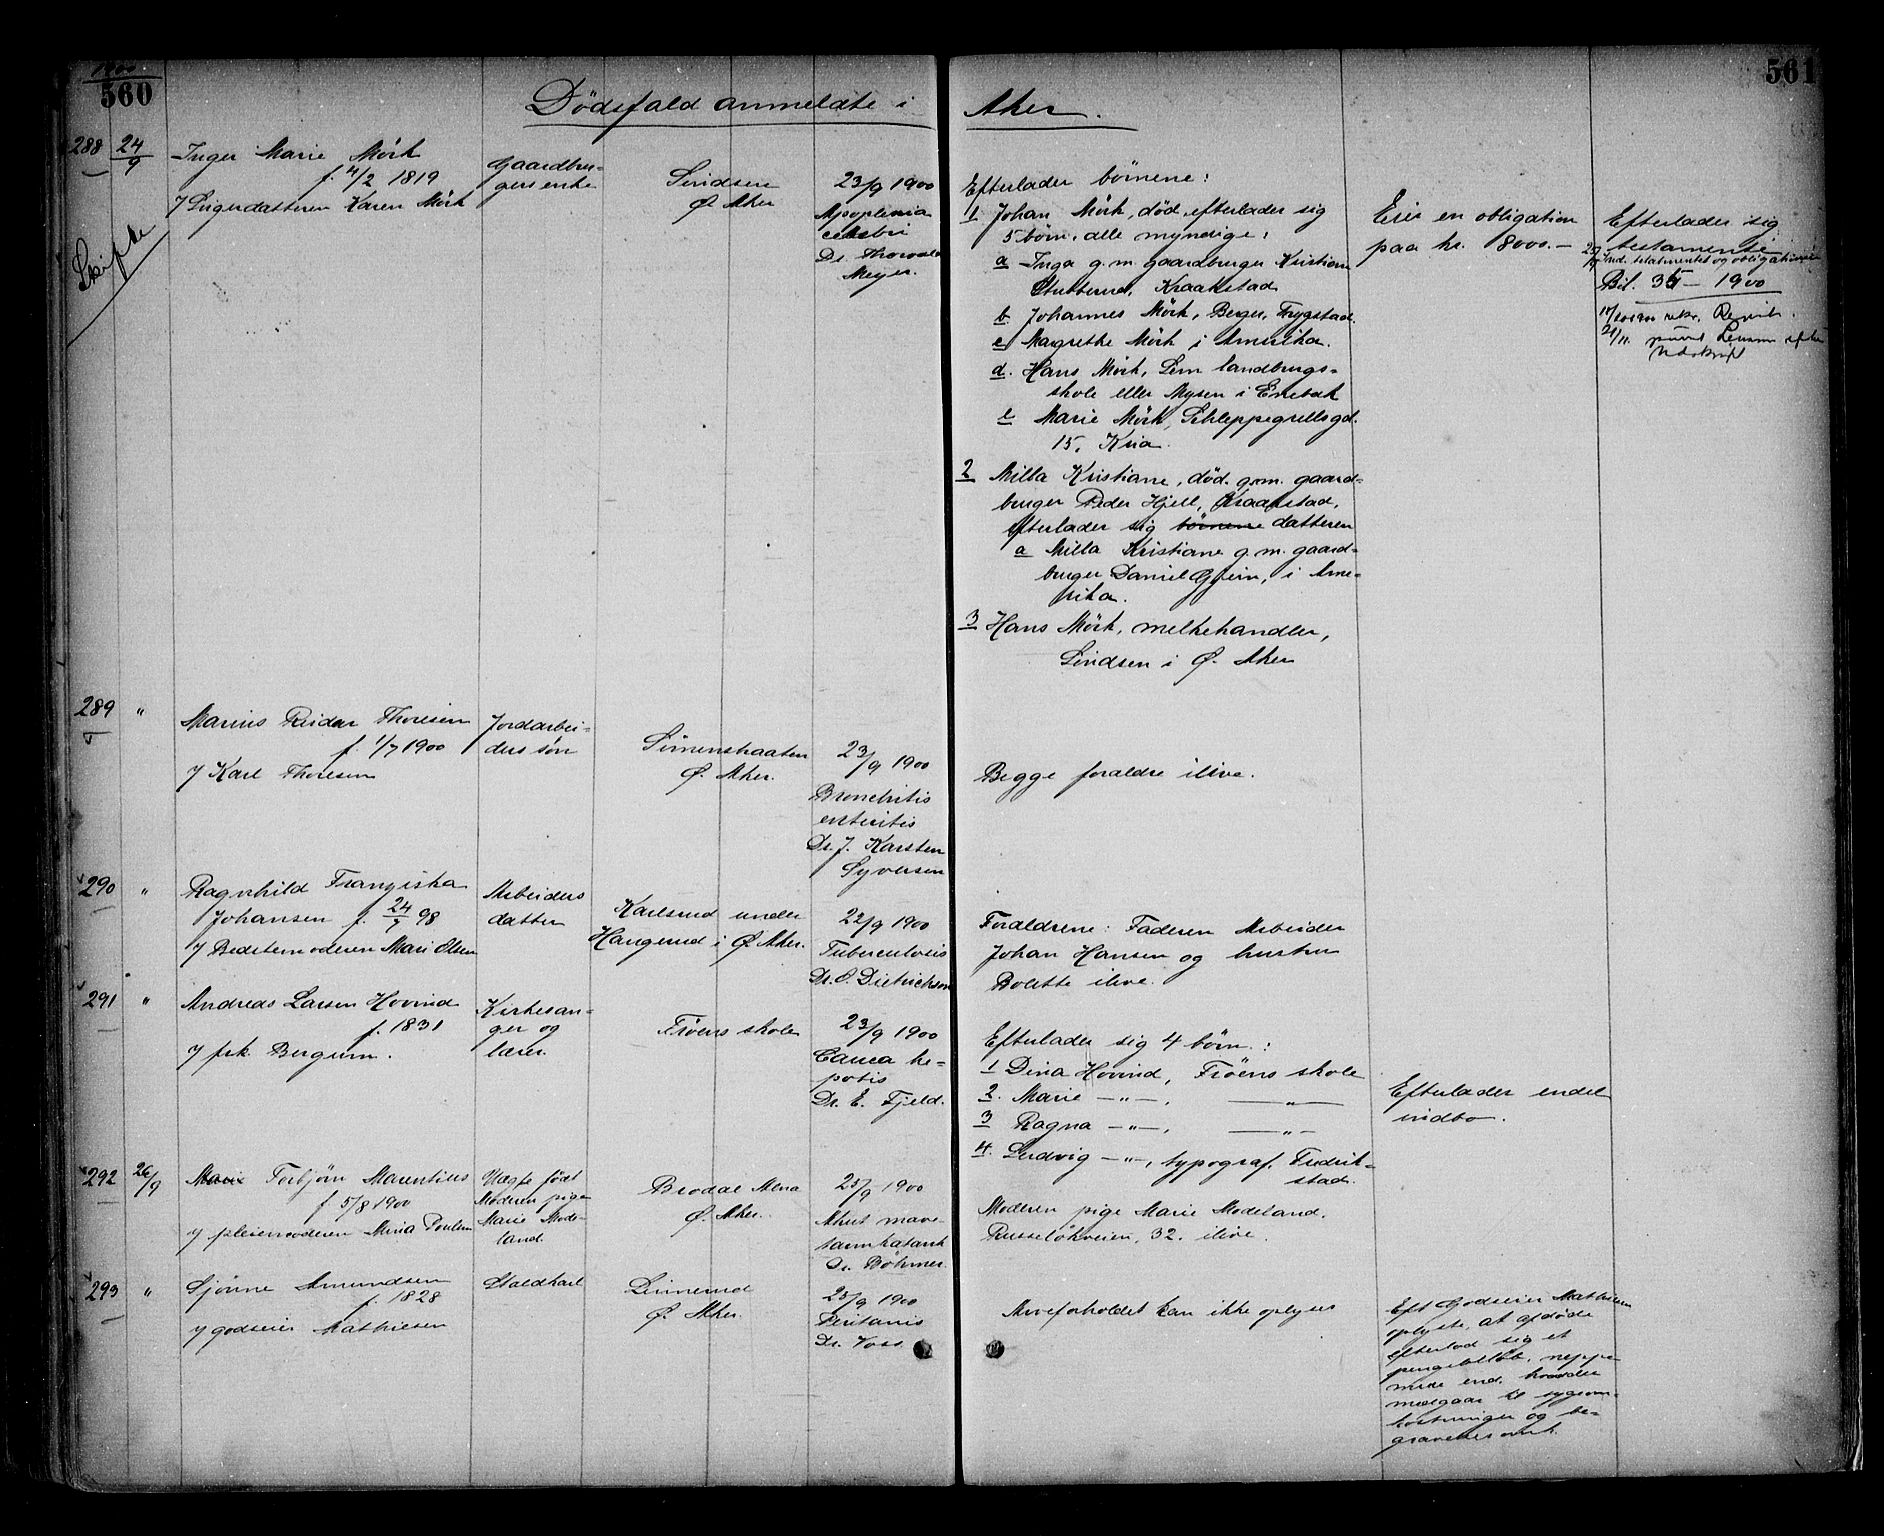 1900
560
561
Dødsfald anmeldte i Aker.
288 24/9
Skifte
Inger Marie Mörk
f. 4/2 1819
/ Svigerdatteren Karen Mörk
Gaardbru-
gerenke
Sindsen
Ø. Aker
23/9 1900
Apoplexia
cerebri
Dr. Thorvald
Meyer.
Efterlader börnene:
1 Johan Mörk, död, efterlader sig
5 börn, alle myndige:
a Inga g.m. gaardbruger Kristian
Stubberud, Kraakstad
b Johannes Mörk, Berger, Trygstad.
c Magrethe Mörk i Amerika.
d. Hans Mörk, Sem landbrugs-
skole eller Mysen i Enebak
e Marie Mörk, Schleppegrellsgd.
15, Kria.
2 Milla Kristiane, död, g.m. gaard-
bruger Peder Hjell, Kraakstad,
efterlader sig börnene datteren
a Milla Kristiane g.m. gaard-
bruger Daniel , i Ame-
rika.
3 Hans Mörk, melkehandler,
Sindsen i Ø. Aker
Eier en obligation
paa kr. 8000.-
Efterlader sig
testamente.
Ind. testamentet og obligationen
Bil. 35 - 1900
289 "
Marius Reidar Thoresen
f. 1/7 1900
/ Karl Thoresen
Jordarbei-
ders sön
Simenstraaten
Ø. Aker.
23/9 1900
Bronchitis
enteritis
Dr. J. Karsten
Syversen
Begge foraldre ilive.
290 "
Ragnhild Franziska
Johansen f. 24/7 98
/ Bedstemoderen Mari Olsen
Arbeiders
datter
Karlsrud under
Haugerud i Ø. Aker.
22/9 1900
Tuberculosis
Dr. O. Dietrichson
Foraldrene: Faderen Arbeider
Johan Hansen og hustru
Bolette ilive.
291 "
Andreas Larsen Hovind
f. 1831
/ frk. Bergum.
Kirkesan-
ger og
lærer.
Fröens skole
23/9 1900
Cancer he-
patis
Dr. E. Fjeld.
Efterlader sig 4 börn:
1 Dina Hovind, Fröens skole
2. Marie -"-, -"-
3 Ragna -"-, -"-
4. Ludvig -"-, typograf, Fredrik-
stad.
Efterlader endel
indbo.
292 26/9
Marie Torbjörn Marentius
f. 5/8 1900
/ pleiemoderen Mina Poulsen
Uægte födt
Moderen pige
Marie Mode-
land.
Brodal Alna
Ø. Aker.
25/9 1900
Akut mave-
tarmkatarrh
Dr. Böhmer.
Moderen pige Marie Modeland,
Russelökveien, 32. ilive.
293 "
Sjönne Amundsen
f. 1828
/ godseier Mathiesen
Staldkarl
Linnerud
Ø. Aker.
25/9 1900
Peritonitis
Dr. Voss.
Arveforholdet kan ikke oplyses
Eft. Godseier Mathiesen
oplyste, at afdöde
efterlod sig et
pengebelöb, neppe
mere end hvad der
medgaar til sygeom-
kostninger og be-
gravelsesomk.